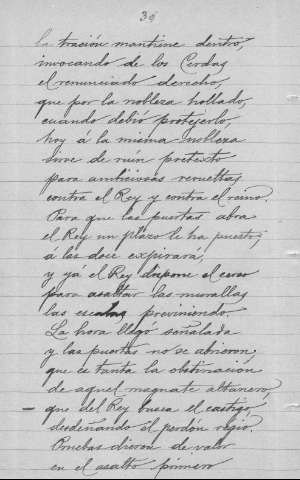 39
la tración mantiene dentro,
invocando de los Cerdas
el renunciado derecho,
que por la nobleza hollado,
cuando debió protejerlo,
hoy á la misma nobleza
sirve de ruin pretexto
para ambiciosas revueltas
contra el Rey y contra el reino.
Para que las puertas abra
el Rey un plazo le ha puesto;
á las doce expirará,
y ya el Rey dispone el cerco
para asaltar las murallas
las previniendo.
La hora llegó señalada
y las puertas no se abrieron,
que es tanta la obstinacion
de aquel magnate altanero,
que del Rey busca el castigo,
desdeñando el perdón regio.
Pruebas dieron de valor
en el asalto primero